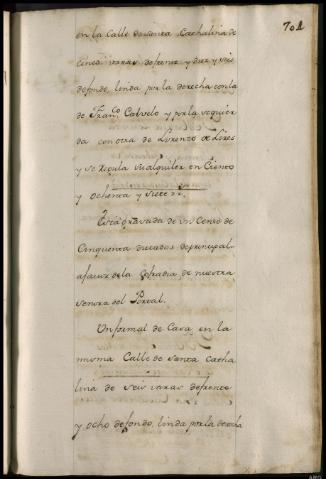 701
en la Calle de santa Cathalina de
cinco varas defrente y diez y seis
defondo, linda porla derecha conla
de Franco. Calvelo y porla izquier
da con otra de Lorenzo de Lires
y se regula su alquiler en Ciento
y ochenta y siete rs.
Esta gravada de un Censo de
Cinquenta ducados deprincipal
afavor dela Cofradia de nuestra
senora del Portal.
Un formal de Casa en la
misma Calle de santa Catha
lina de seis varas defrente
y ocho defondo, linda porla derecha